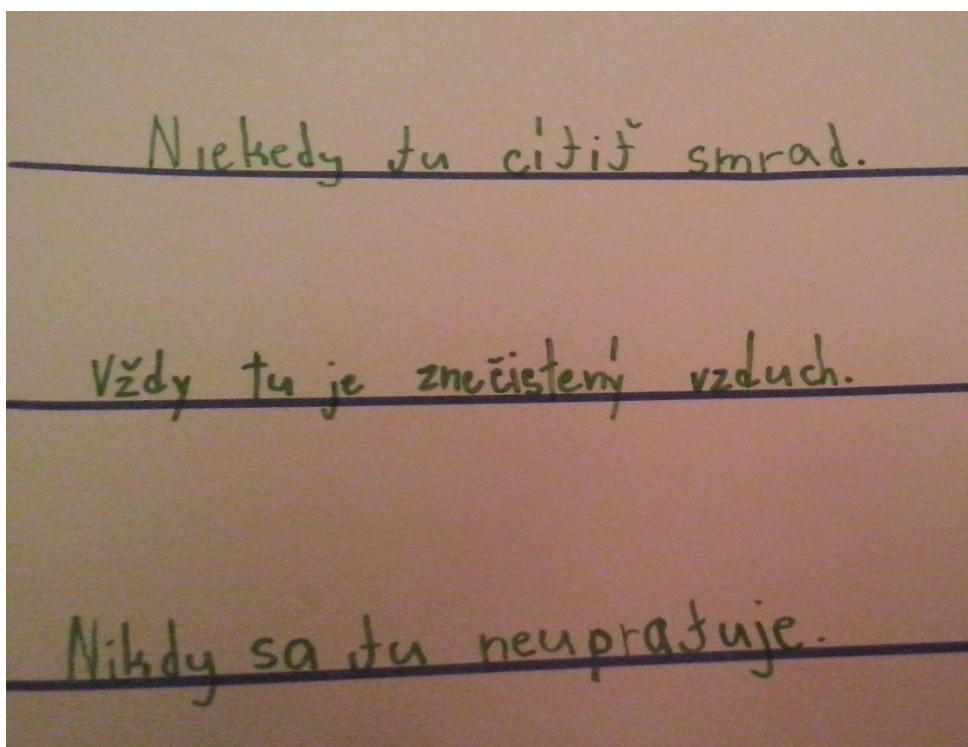 Niekedy tu cítiť smrad.
Vždy tu je znečistený vzduch.
Nikdy sa tu neupratuje.